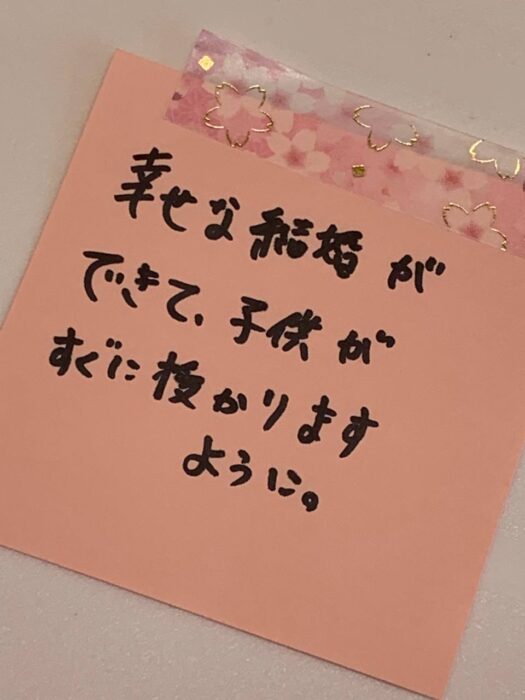 幸せな結婚が
できて、子供が
すぐに授かります
ように。